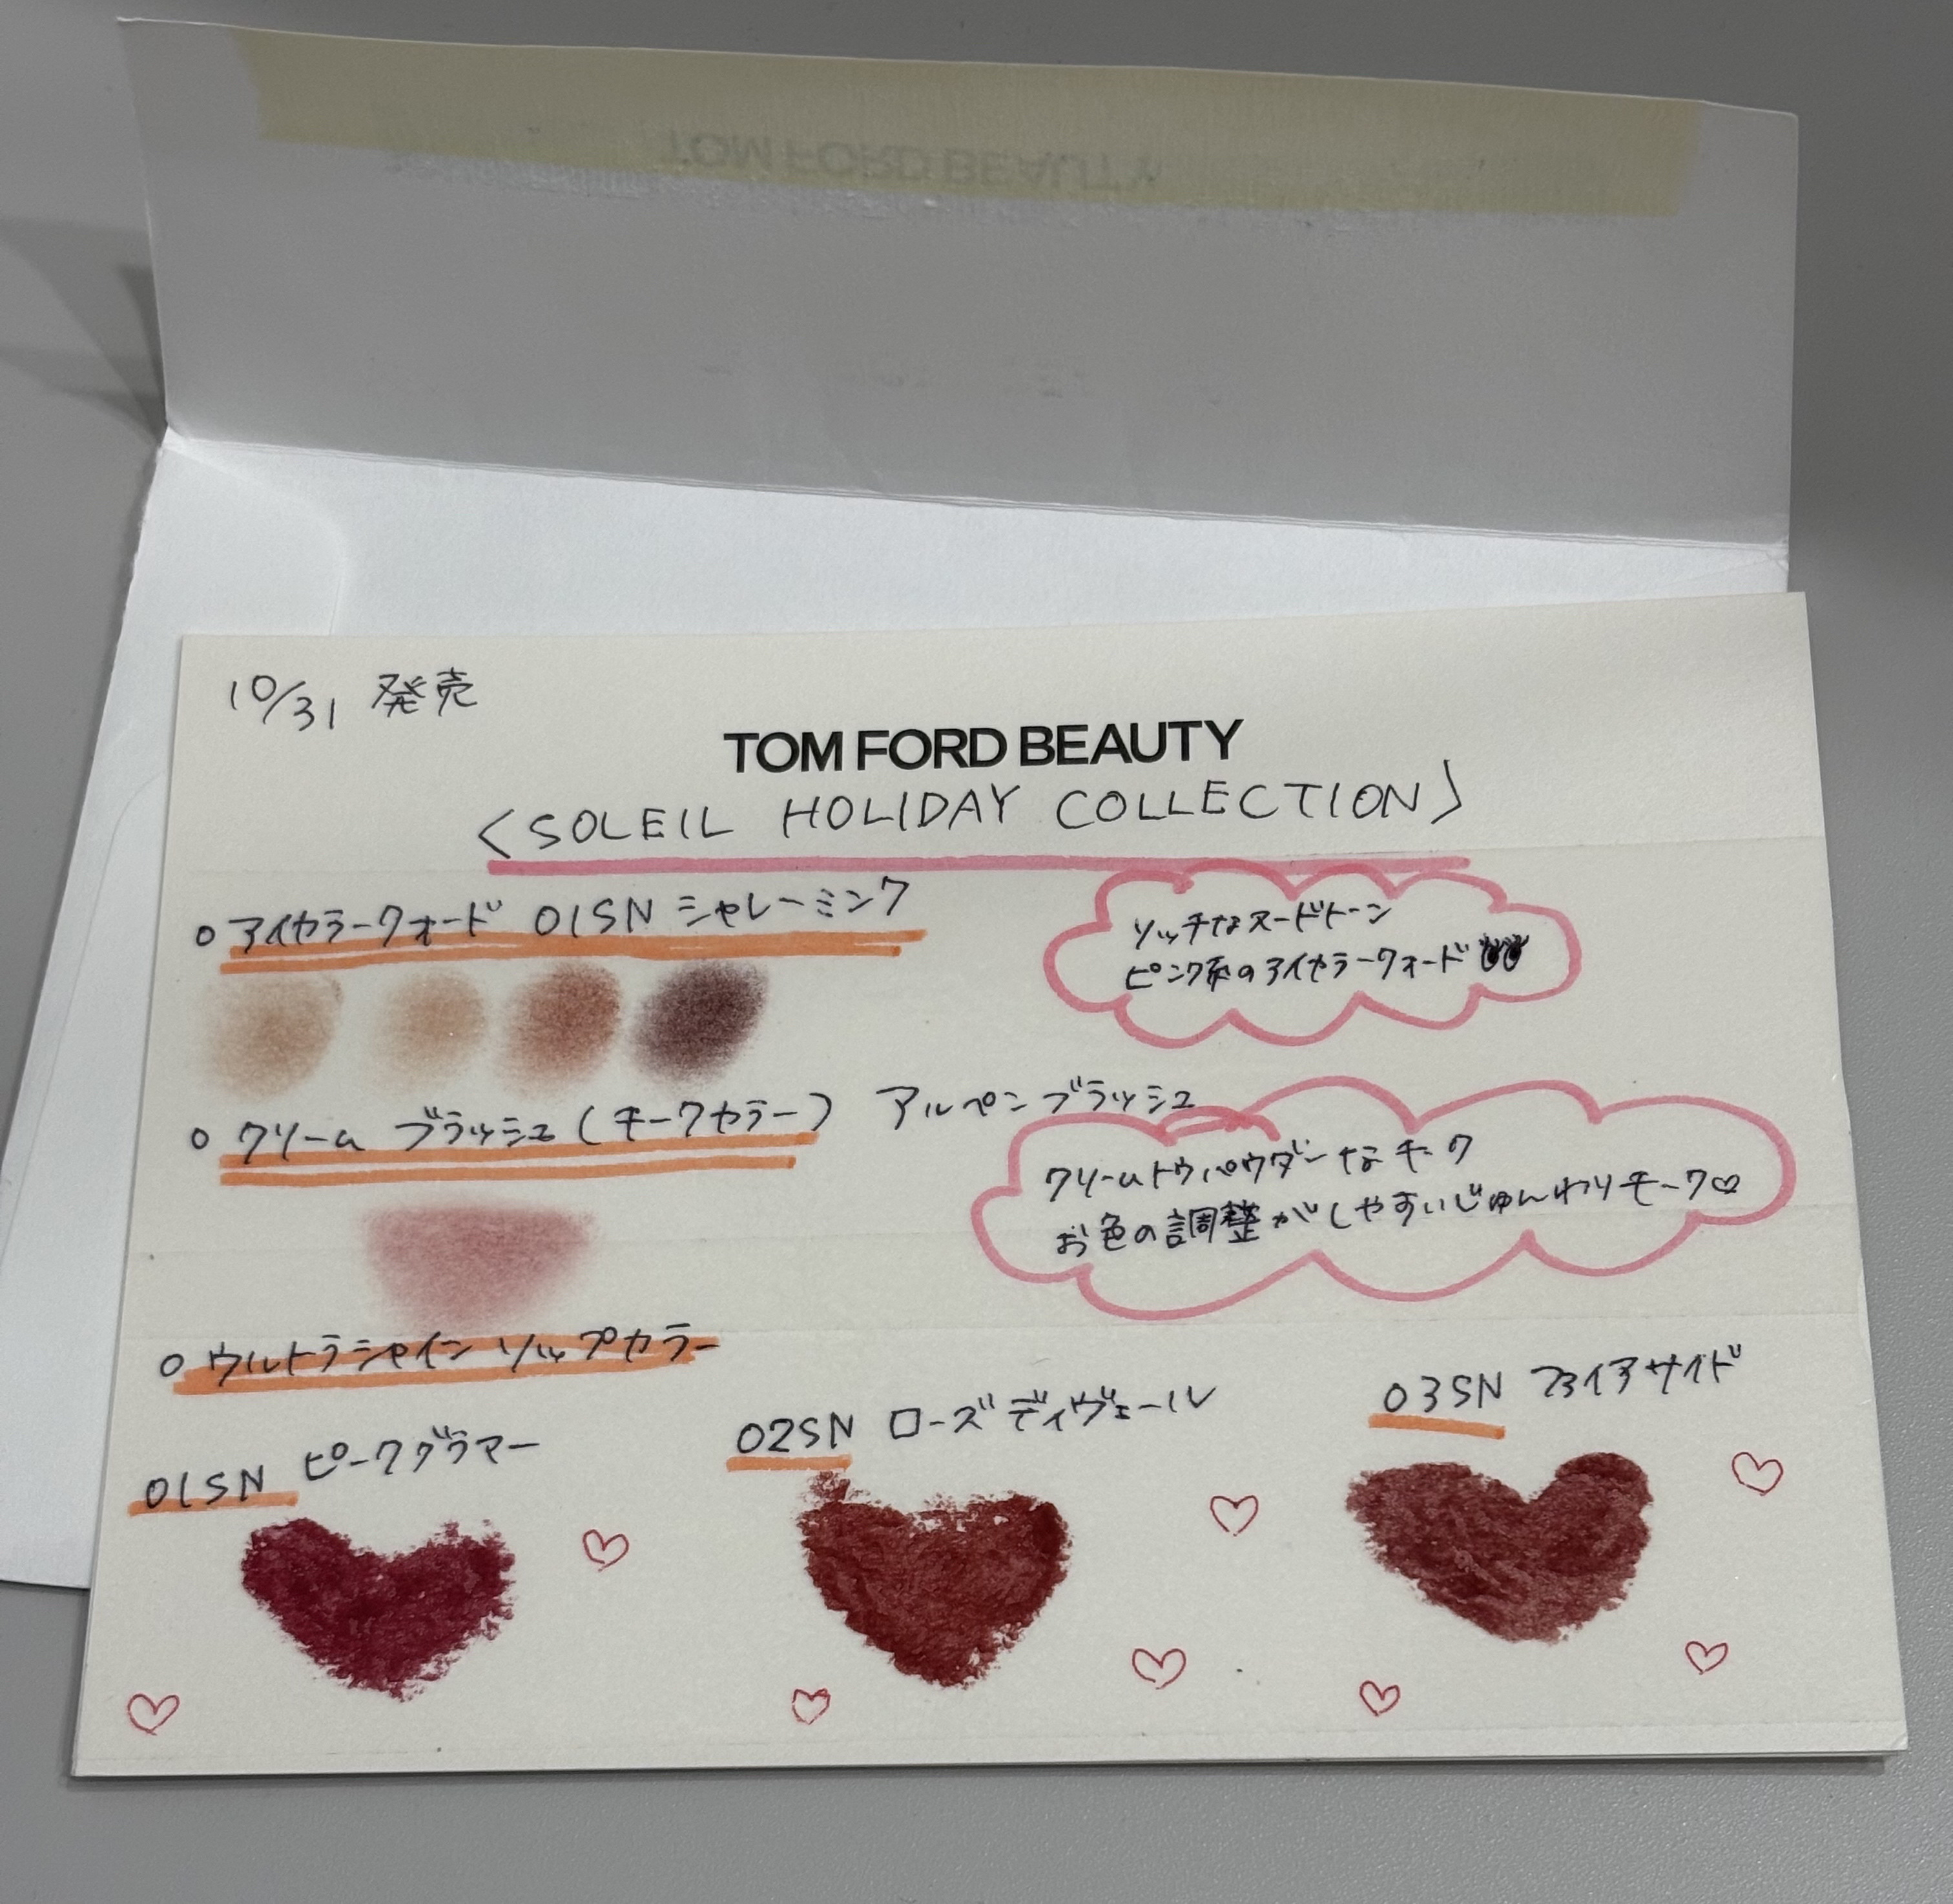 TOM FORD BEAUTY
10/31 発売
TOM FORD BEAUTY
<SOLEIL HOLIDAY COLLECTION>
○ アイカラークォード 01SN シャレーミンク
リッチなヌードトーン
ピンク系のアイカラークォード
○ クリーム ブラッシュ(チークカラー) アルペンブラッシュ
クリームトゥパウダーなチーク
お色の調整がしやすいじゅんわりチーク♡
○ ウルトラシャイン リップカラー
01SN ピークグラマー
02SN ローズディヴェール
03SN ファイアサイド